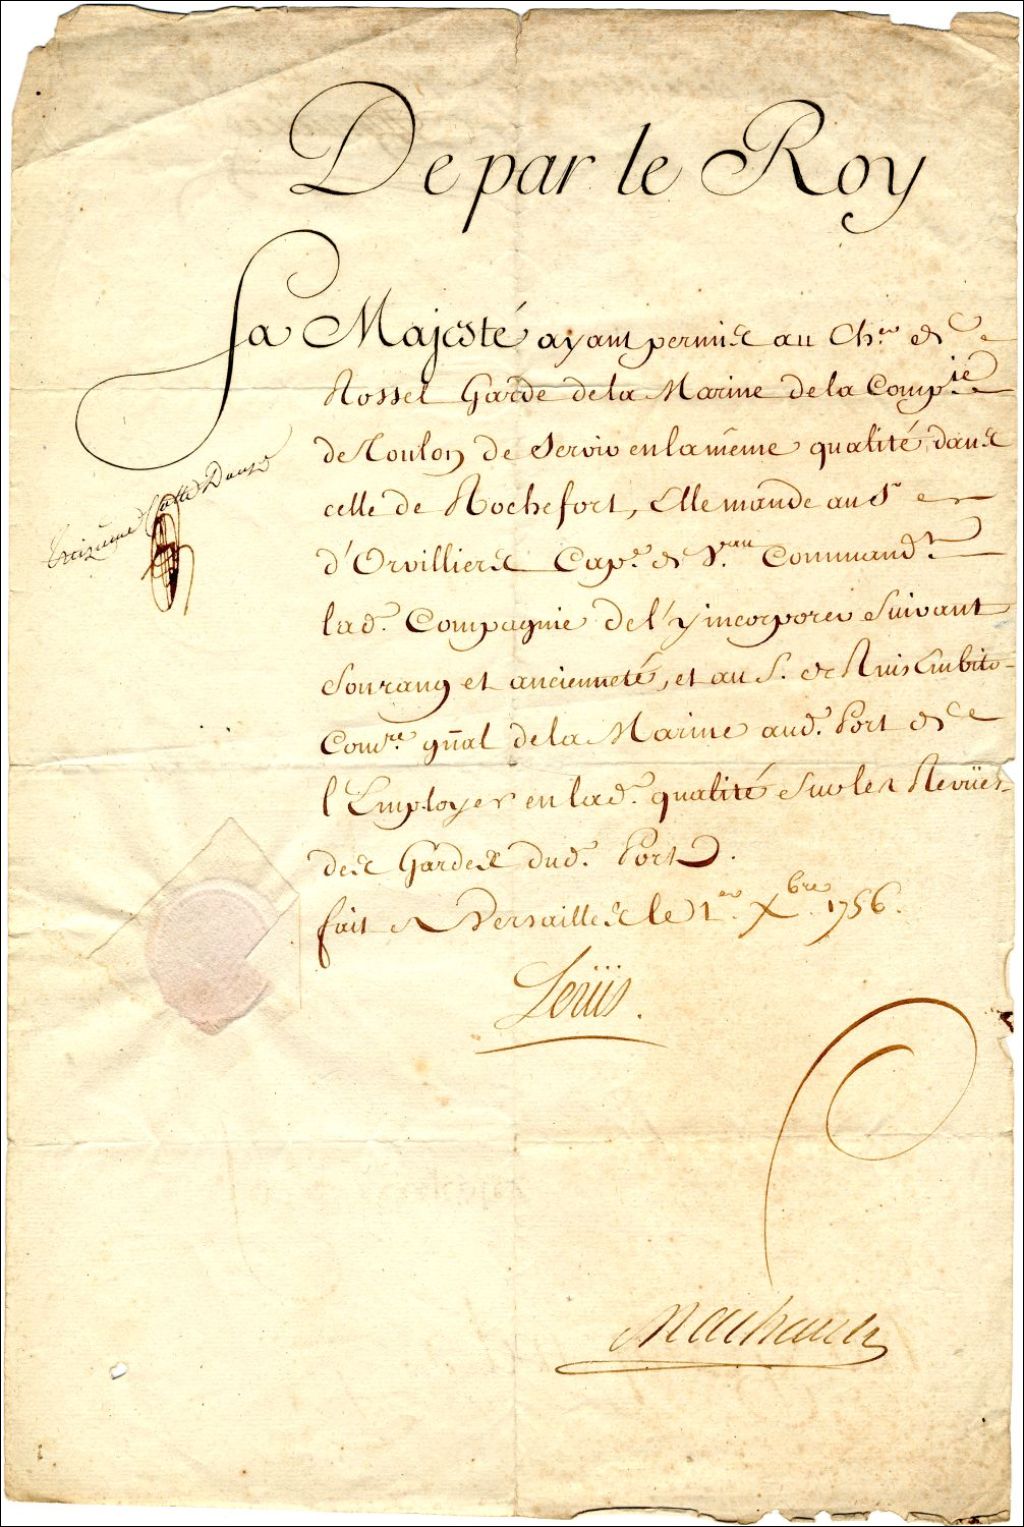 De par le Roy
Sa Majesté ayant permis au Ch.er de
Rossel Garde de la Marine de la Compie
de Toulon de Servir en la même qualité dans
celle de Rochefort, Elle mande au Sr
d'Orvilliers Cap.e de V.au Command.t
lad. Compagnie de l'y incorporer Suivant
Son rang et ancienneté, et au S. de Ruis Embito
Com.re gñal de la Marine aud. Port de
l'Employer en lad. qualité Sur les Revües
des Gardes dud. Port.
fait a Versailles le 1er. Xbre. 1756.
Loüis.
Machault